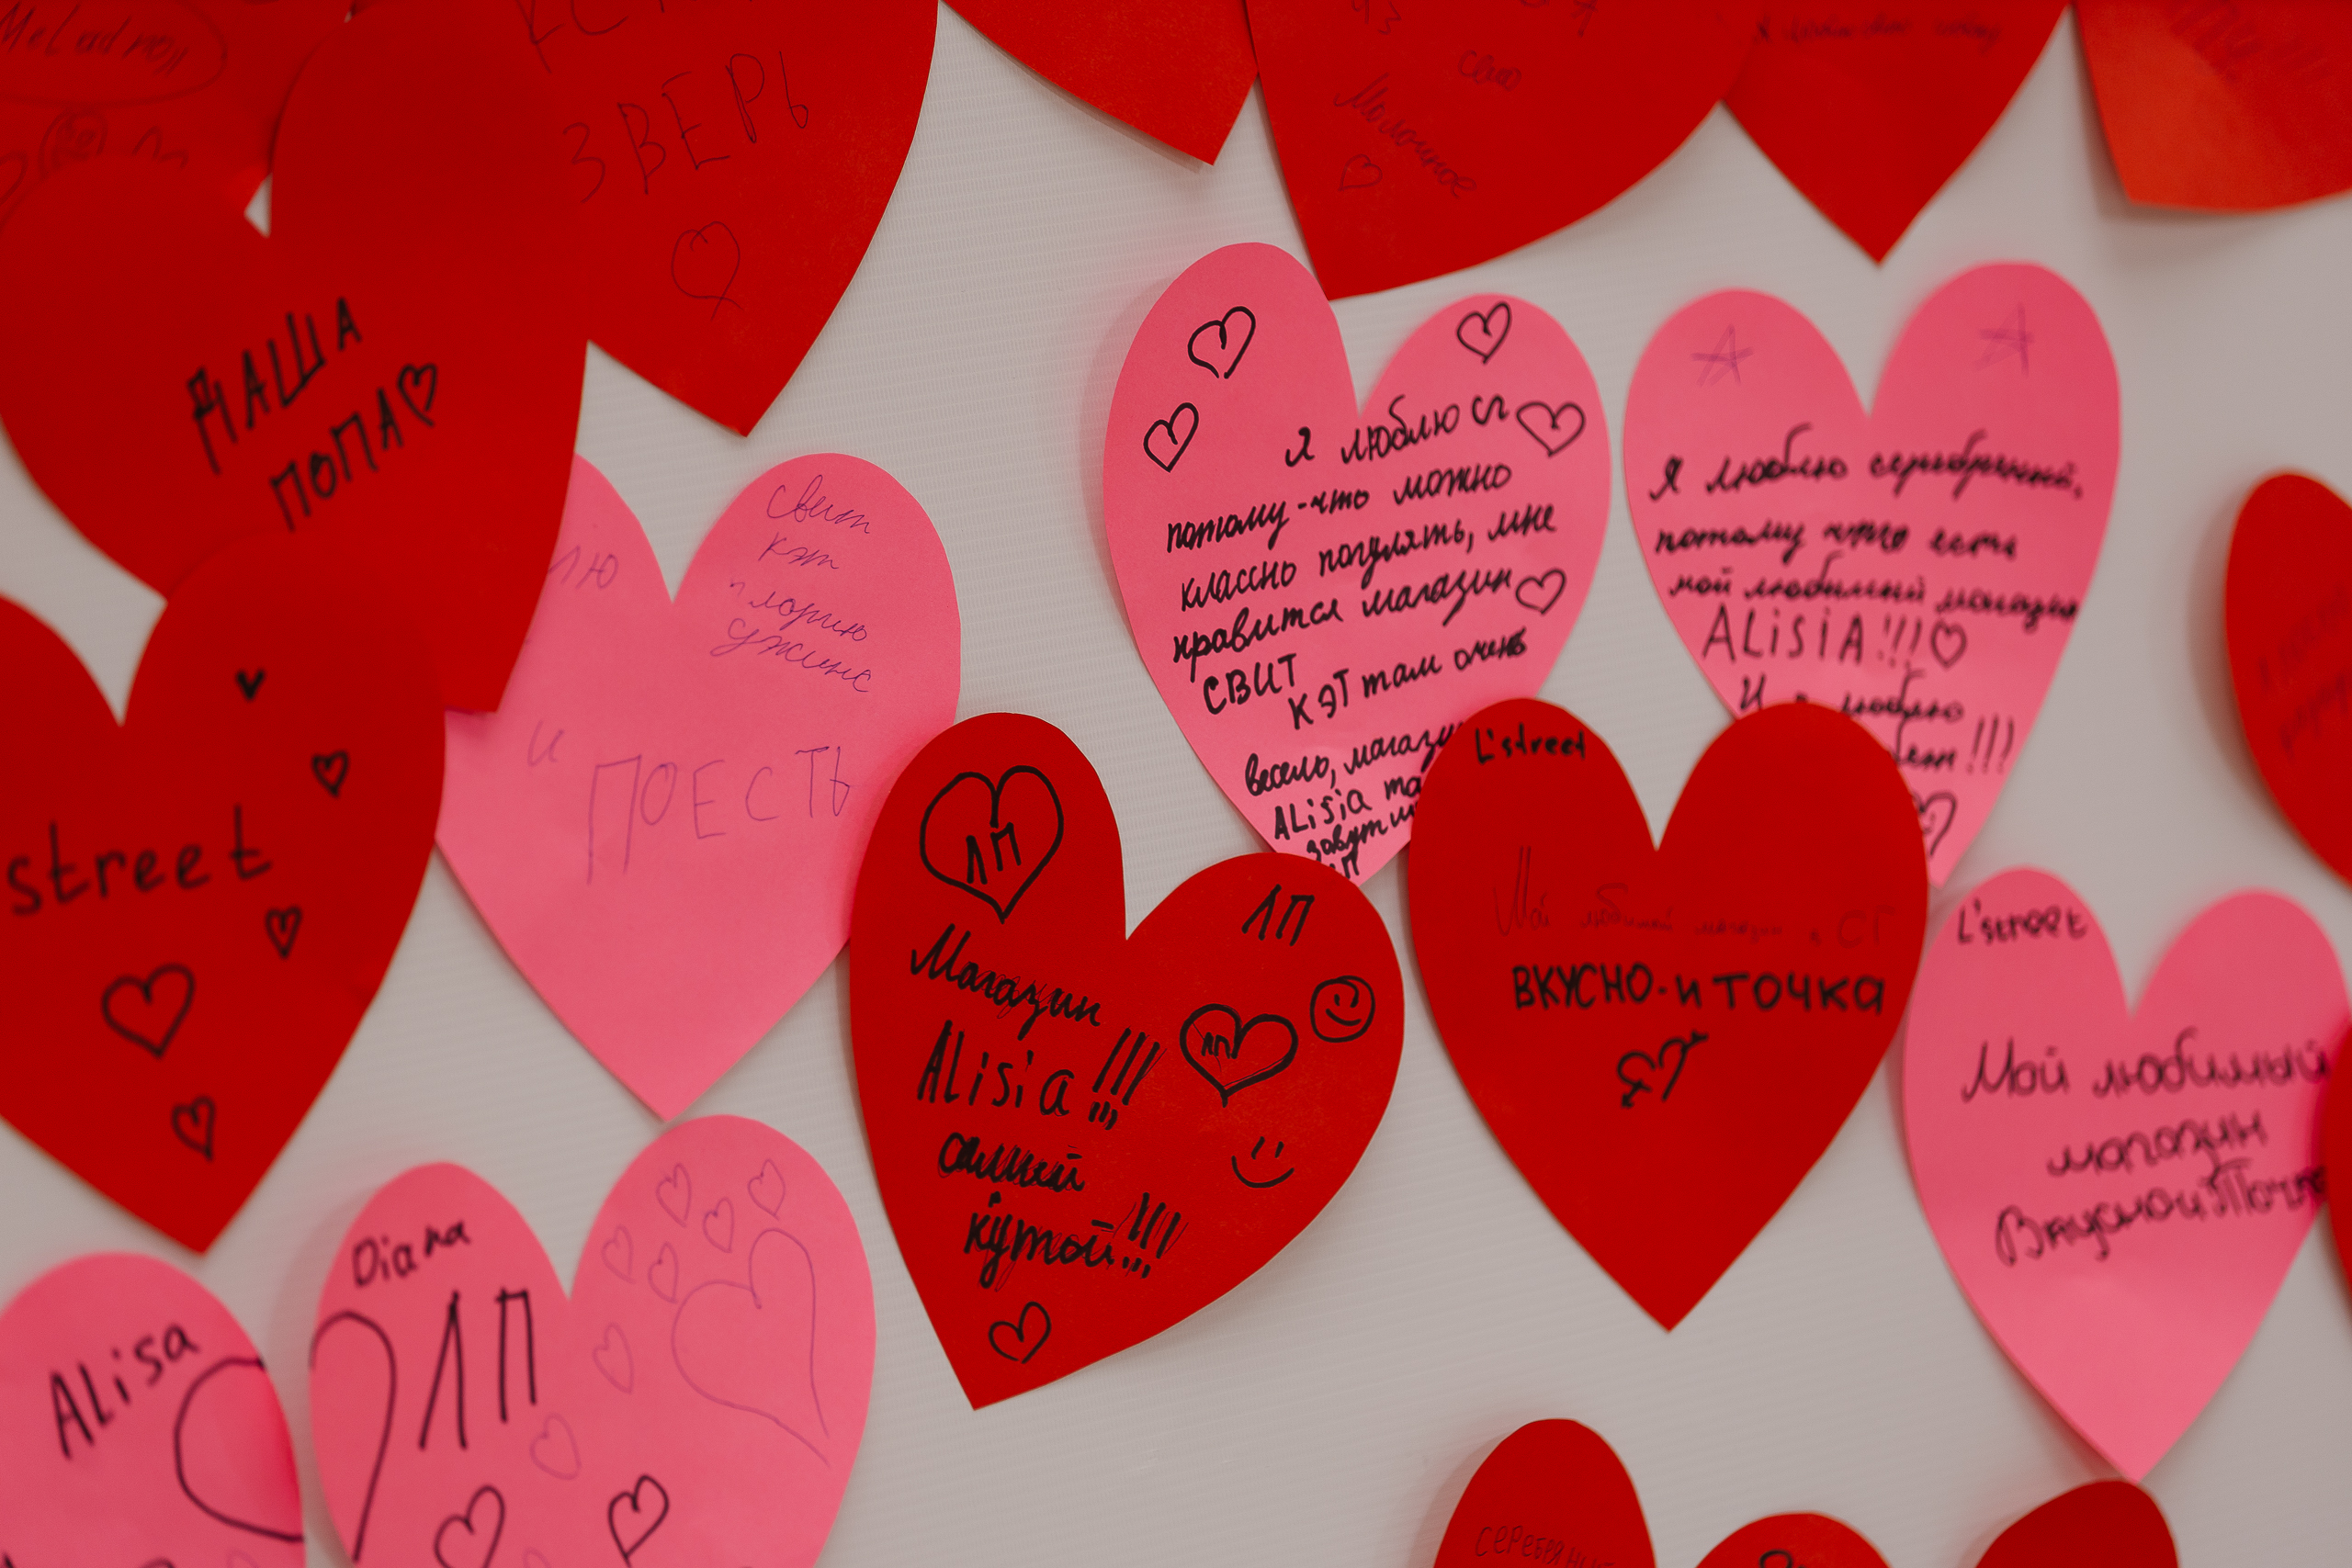 ЗВЕРЬ
сто
Молочное
МАША
ПОПА
ЛЮ
свит
кэт
глорию
джинс
и
ПОЕСТЬ
Я люблю сг
потому-что можно
классно погулять, мне
нравится магазин
СВИТ
КЭТ там очень
весело,
ALiSiA
зовут
ЛП
Я люблю серебрянный,
потому что есть
мой любимый магазин
ALiSiA!!!
И я люблю
!!!
street
ЛП
ЛП
Магазин
ALisia!!!
ЛП
самый
кутой!!!
L'street
Мой любимый магазин в СГ
ВКУСНО-и ТОЧКА
L'street
Мой любимый
магазин
Вкусно и Точка
Diana
ЛП
ALisa